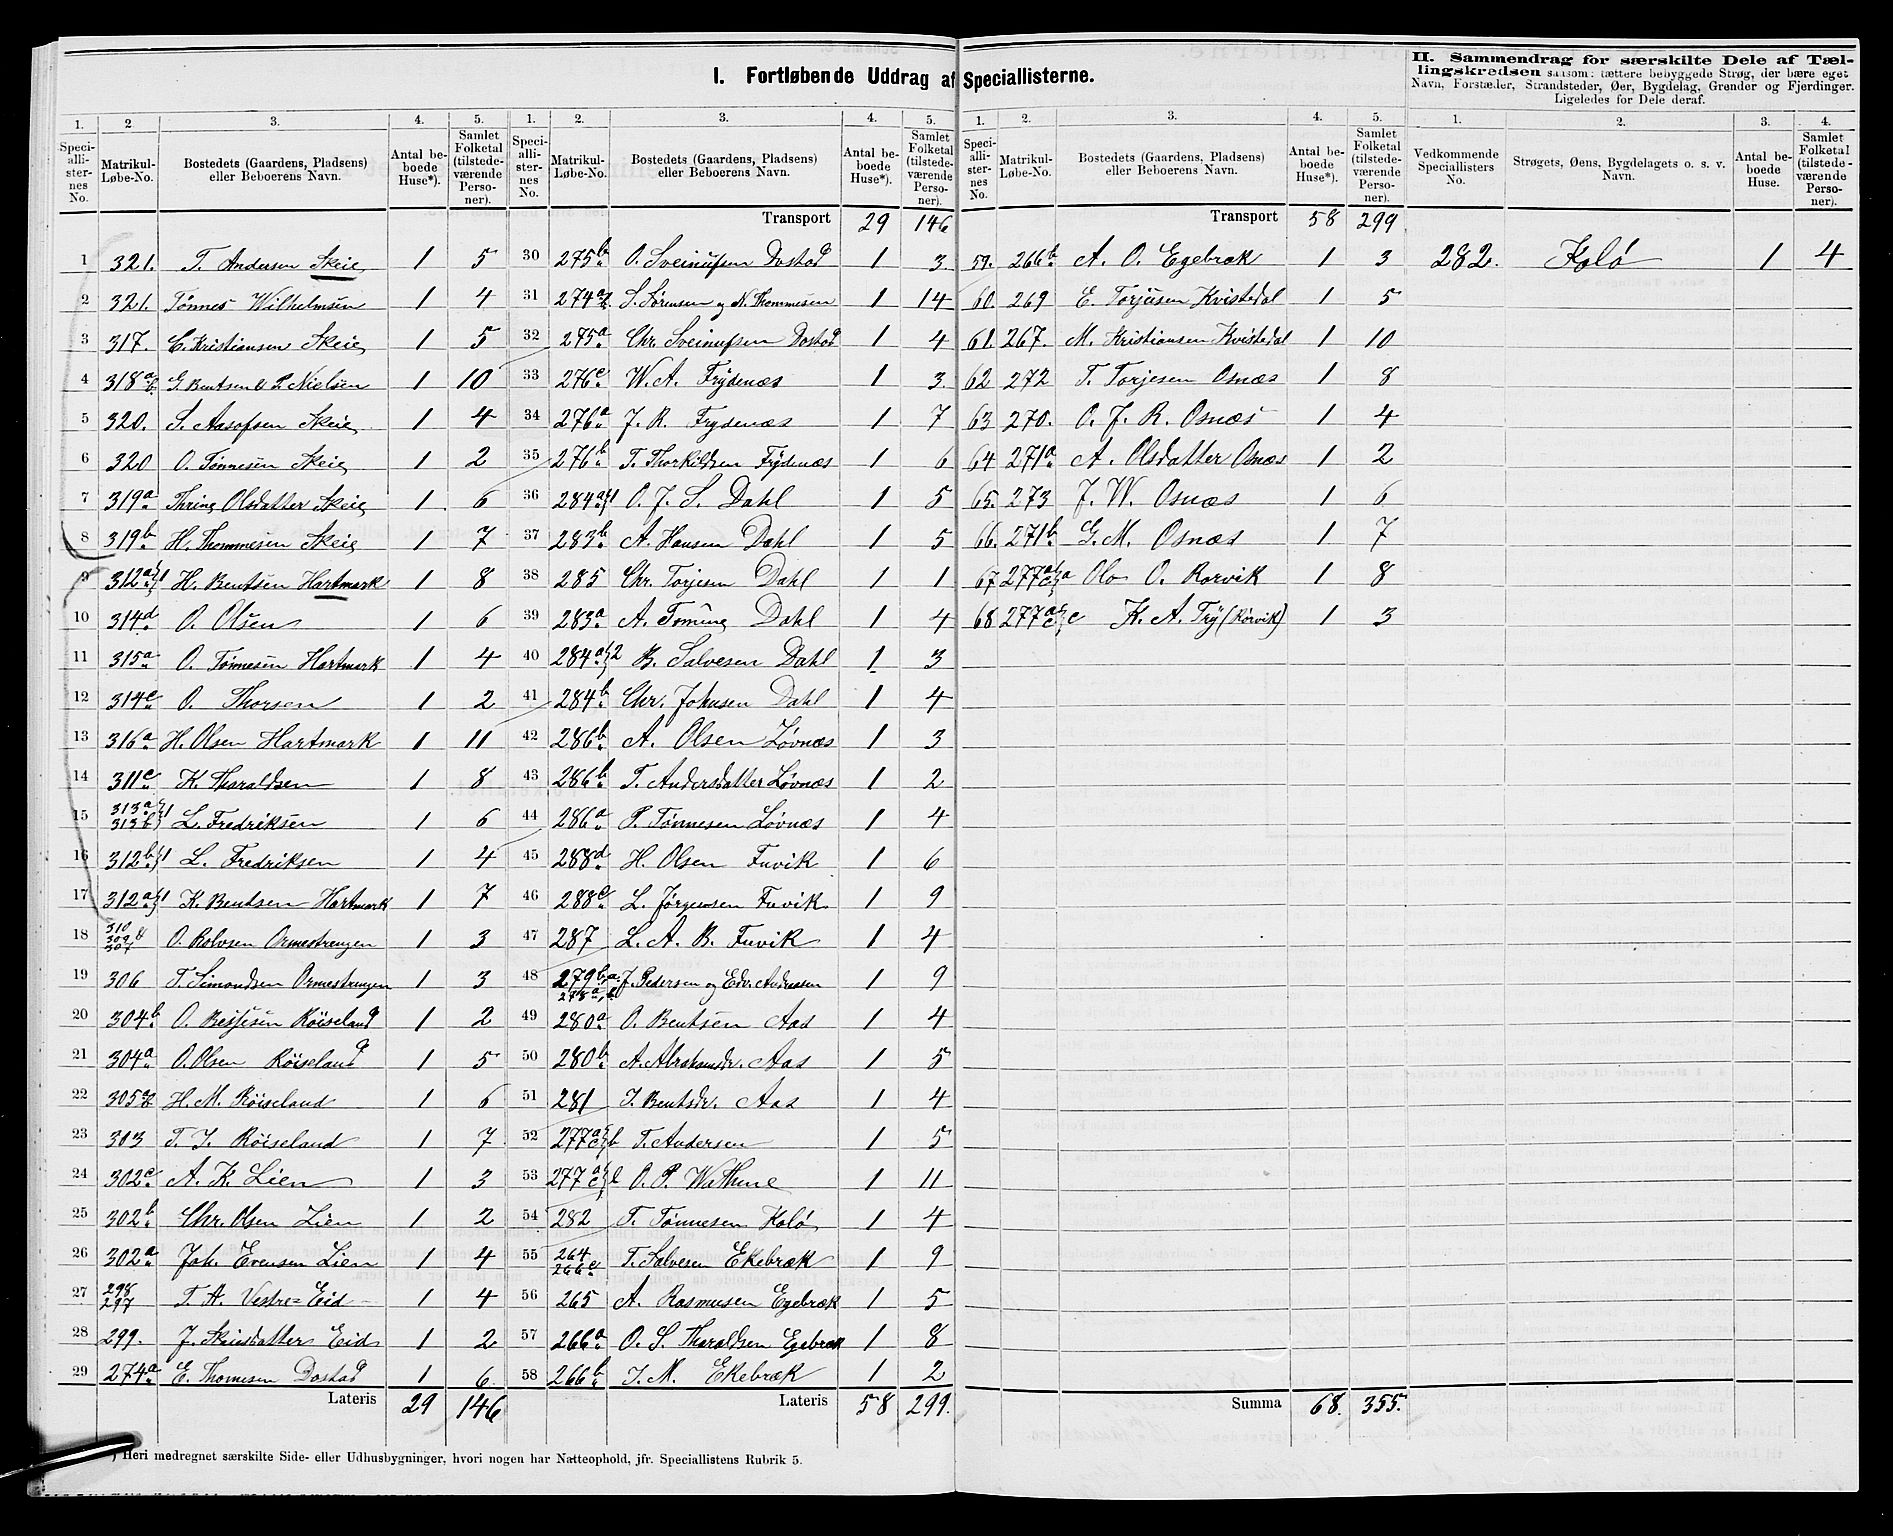 I. Fortløbende Uddrag af Speciallisterne.
1. Speciallisternes No.
2. Matrikul-Løbe-No.
3. Bostedets (Gaardens, Pladsens) eller Beboerens Navn.
4. Antal beboede Huse*).
5. Samlet Folketal (tilstedeværende Personer).
1 321. T. Andersen Skeie 1 5
2 321. Tönnes Wilhelmsen 1 4
3 317. C. Kristiansen Skeie 1 5
4 318 a b G. Bentsen & P. Nielsen 1 10
5 320. S. Aasofsen Skeie 1 4
6 320 O. Tönnesen Skeie 1 2
7 319a Thrine Olsdatter Skeie 1 6
8 319b H. Thommesen Skeie 1 7
9 312a 1 H. Bentsen Hartmark 1 8
10 314d O. Olsen 1 6
11 315a O. Tönnesen Hartmark 1 4
12 314c O. Thorsen 1 2
13 316a H. Olsen Hartmark 1 11
14 311c K. Tharaldsen 1 8
15 313a 313b 1 L. Fredriksen 1 6
16 312b 1 L. Fredriksen 1 4
17 312a 1 K. Bentsen Hartmark 1 7
18 310 309 307 O. Rolvsen Ormestrengen 1 3
19 306 T. Simondsen Ormestrengen 1 3
20 304b O. Bessesen Röiseland 1 2
21 304a O. Olsen Röiseland 1 5
22 305 H. M. Röiseland 1 6
23 303 T. J. Röiseland 1 7
24 302c A. K. Lien 1 3
25 302b Chr. Olsen Lien 1 2
26 302a Joh. Evensen Lien 1 4
27 298 297 T. A. Vestre=Eid 1 4
28 299. J. Eid 1 2
29 274a E. Thomesen Dostad 1 6
Lateris 29 146
1. Speciallisternes No.
2. Matrikul-Løbe-No.
3. Bostedets (Gaardens, Pladsens) eller Beboerens Navn.
4. Antal beboede Huse*).
5. Samlet Folketal (tilstedeværende Personer).
Transport 29 146
30 275b O. Sveinufsen Dostad 1 3
31 274 S. Sörensen og N. Thommesen 1 14
32 275a Chr. Sveinufsen Dostad 1 4
33 276c W. A. Frydenæs 1 3
34 276a J. R. Frydenæs 1 7
35 276b T. Thorkildsen Frydenæs 1 6
36 284a 1 O. J. S. Dahl 1 5
37 283b A. Hansen Dahl 1 5
38 285 Chr. Torjesen Dahl 1 1
39 283a A. Dahl 1 4
40 284a 2 B. Salvesen Dahl 1 3
41 284b Chr. Johnsen Dahl 1 4
42 286b A. Olsen Lövnæs 1 3
43 286b T. Andersdatter Lövnæs 1 2
44 286a P. Tönnesen Lövnæs 1 4
45 288d H. Olsen Fuvik 1 6
46 288c L. Jörgensen Fuvik 1 9
47 287 L. A. B. Fuvik 1 4
48 279b, a 278a, b J. Pedersen og Edv. Andreasen 1 9
49 280a O. Bentsen Aas 1 4
50 280b A. Abrahamsdr. Aas 1 5
51 281 J. Bentsdr. Aas 1 4
52 277 a c b T. Andersen 1 5
53 277 a c O. P. Wathne 1 11
54 282 T. Tönnesen Kolö 1 4
55 264 266c T. Salvesen Ekebræk 1 9
56 265 A. Rasmusen Egebræk 1 5
57 266a O. S. Tharaldsen Egebræk 1 8
58 266b J. N. Ekebræk 1 2
Lateris 58 299.
1. Speciallisternes No.
2. Matrikul-Løbe-No.
3. Bostedets (Gaardens, Pladsens) eller Beboerens Navn.
4. Antal beboede Huse*).
5. Samlet Folketal (tilstedeværende Personer).
Transport 58 299
59. 266b A. O. Egebræk 1 3
60. 269 E. Torjusen Kvistedal 1 5
61. 267. M. Kristiansen Kvistedal 1 10
62 272 T. Torjesen Osnæs 1 8
63 270. O. J. R. Osnæs 1 4
64 271a A. Olsdatter Osnæs 1 2
65. 273 J. W. Osnæs 1 6
66. 271b G. M. Osnæs 1 7
67 277 a c a Ole O. Rorvik 1 8
68 277 a c c K. A. Try (Rörvik) 1 3
Summa 68. 355.
II. Sammendrag for særskilte Dele af Tællingskredsen saasom: tættere bebyggede Strøg, der bære eget Navn, Forstæder, Strandsteder, Øer, Bygdelag, Grender og Fjerdinger. Ligeledes for Dele deraf.
1. Vedkommende Speciallisters No.
2. Strøgets, Øens, Bygdelagets o. s. v. Navn.
3. Antal beboede Huse.
4. Samlet Folketal (tilstedeværende Personer).
282. Kolö 1 4
*) Heri medregnet særskilte Side- eller Udhusbygninger, hvori nogen har Natteophold, jfr. Speciallistens Rubrik 5.